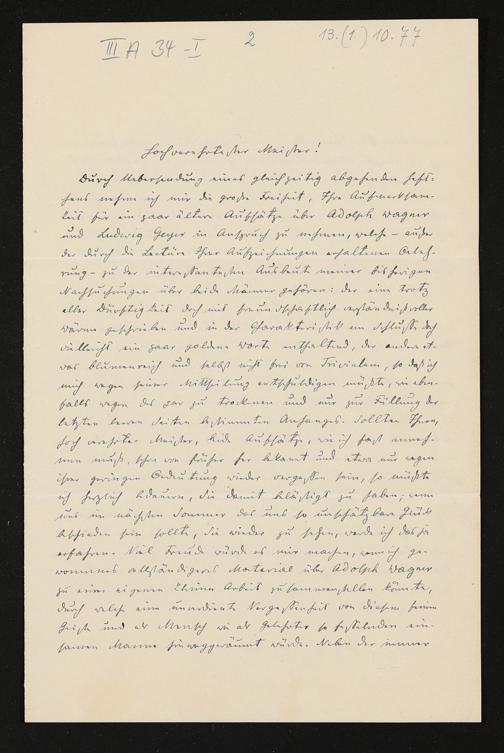 III A 34 - I
2
13.(1) 10.77
Hochverehrtester Meister!
Durch Uebersendung eines gleichzeitig abgehenden Heft-
chens nehme ich mir die große Freiheit, Ihre Aufmerksam-
keit für ein paar ältere Aufsätze über Adolph Wagner
und Ludwig Geyer in Anspruch zu nehmen, welche – außer
der durch die Lectüre Ihrer Aufzeichnungen erhaltenen Beleh-
rung – zu der interessantesten Ausbeut meiner bisherigen
Nachsuchungen über beide Männer gehören: der eine trotz
aller Dürftigkeit doch mit freundschaftlich verständnißvoller
Wärme geschrieben und in der Charakteristik am Schlusse doch
vielleicht ein paar goldene Worte enthaltend, der andere et-
was blumenreich und selbst nicht frei von Trivialem, so daß ich
mich wegen seiner Mittheilung entschuldigen müßte, wie eben-
falls wegen des gar zu trockenen und nur zur Füllung der
letzten leeren Seiten bestimmten Anhanges. Sollten Ihnen,
hoch verehrter Meister, beide Aufsätze, wie ich fast anneh-
men muß, schon von früher her bekannt und etwa nur wegen
ihrer geringen Bedeutung wieder vergessen sein, so müßte
ich herzlich bedauern, Sie damit belästigt zu haben; wenn
uns im nächsten Sommer das uns so unschätzbare Glück
beschieden sein sollte, Sie wieder zu sehen, werde ich das ja
erfahren. Viel Freude würde es mir machen, wenn ich ge-
wonnenes vollständigeres Material über Adolph Wagner
zu einer eigenen kleinen Arbeit zusammenstellen könnte,
durch welche eine unverdiente Vergessenheit von diesem
Geiste und als Mensch wie als Gelehrter so fesselnden ein-
samen Manne hinweggeräumt würde. Neben der immer